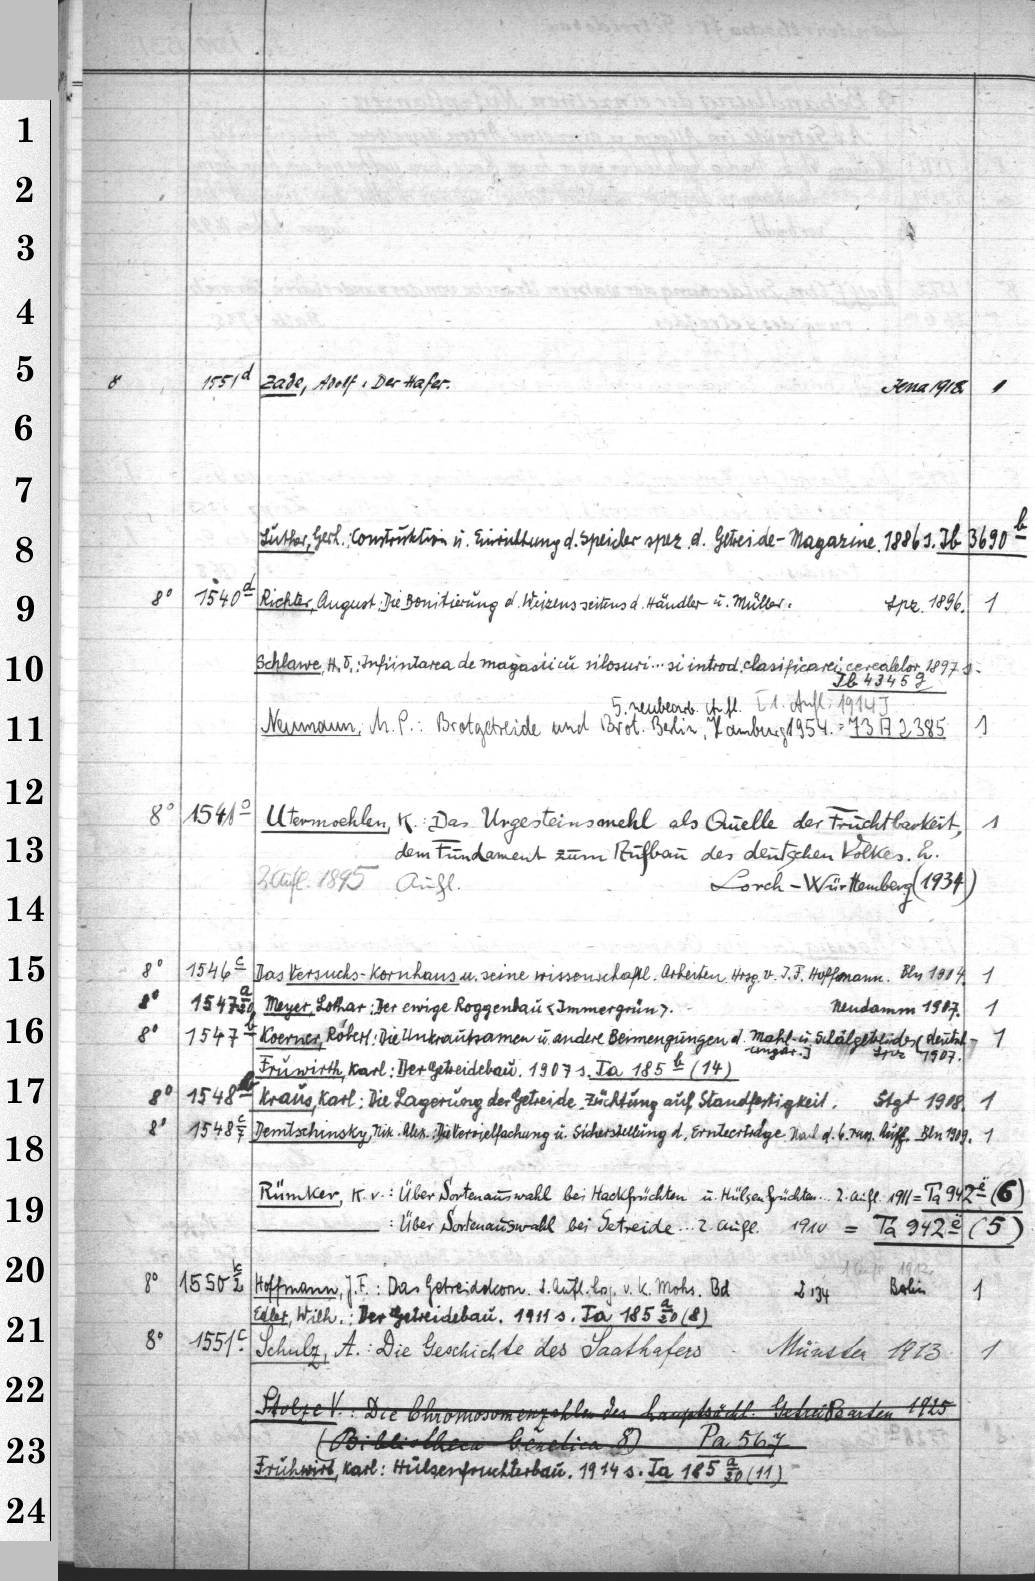 1
2
3
4
5
8 1551d Zade, Adolf: Der Hafer. Jena 1918. 1
6
7
8
Luther, Gerh.: Construktion u. Einrichtung d. Speicher spez. d. Getreide-Magazine. 1886 s. Ib 3690 b
9
8° 1540 d Richter, August: Die Bonitierung d. Weizens seitens d. Händler u. Müller. Lpz. 1896. 1
10
Schlawe, H. v.: Infiintarea de magasii cu silosuri ... si introd. clasificarei cerealelor. 1897 s.
Ib 4345 g
5. neubearb. Aufl. [1. Aufl. 1914]
11
Neumann, M. P.: Brotgetreide und Brot. Berlin, Hamburg 1954. = 73 A 2385 1
12
8° 1541 o Utermoehlen, K.: Das Urgesteinsmehl als Quelle der Fruchtbarkeit,
13
dem Fundament zum Aufbau des deutschen Volkes. 2.
2. Aufl. 1895 Aufl. Lorch-Württemberg (1934) 1
14
15
8° 1546 c Das Versuchs-Kornhaus u. seine wissenschaftl. Arbeiten. Hrsg. v. J. F. Hoffmann. Bln 1904. 1
8° 1547 a/50 Meyer, Lothar: Der ewige Roggenbau <Immergrün>. Neudamm 1907. 1
16
8° 1547 b Koerner, Robert: Die Unkrautsamen u. andere Beimengungen d. Mahl- u. Schälgetreides (deutsch-
ungar.] Lpz 1907. 1
Fruwirth, Karl: Der Getreidebau. 1907 s. Ia 185 b (14)
17
8° 1548 Kraus, Karl: Die Lagerung der Getreide. Züchtung auf Standfestigkeit. Stgt 1908. 1
8° 1548 c/7 Demtschinsky, Nik. Alex.: Die Vervielfachung u. Sicherstellung d. Ernteerträge. Nach d. 6. russ. Aufl. Bln 1909. 1
18
19
Rümker, K. v.: Über Sortenauswahl bei Hackfrüchten u. Hülsenfrüchten... 2. Aufl. 1911 = Ta 942 e (6)
: Über Sortenauswahl bei Getreide ... 2. Aufl. 1910 = Ta 942 e (5)
20
1. Aufl. 1912.
8° 1550 k/2 Hoffmann, J. F.: Das Getreidekorn. 2. Aufl. bg. v. K. Mohs. Bd 2 1934 Berlin 1
Edler, Wilh.: Der Getreidebau. 1911 s. Ia 185 a/50 (8)
21
8° 1551 c Schulz, A.: Die Geschichte des Saathafers. Münster 1913. 1
22
Stolze V.: Die Chromosomenzahlen der hauptsächl. Getreidearten 1925
23
(Bibliotheca Genetica 8) Pa 567
Fruhwirt, Karl: Hülsenfruchterbau. 1914 s. Ia 185 a/50 (11)
24